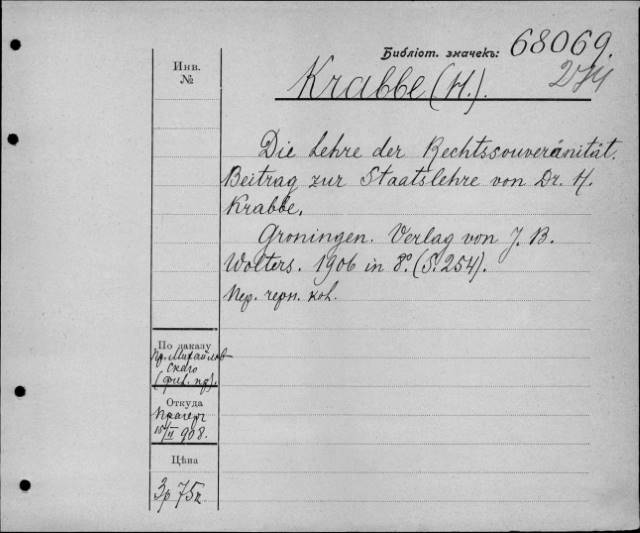 Библіот. значекъ: 68069.
Инв.
№
Krabbe (H.).
Die Lehre der Rechtssouveränität.
Beitrag zur Staatslehre von Dr. H.
Krabbe.
Groningen. Verlag von J. B.
Wolters. 1906 in 8º. (S. 254).
Пер. черн. кож.
По заказу
пр. Михайлов-
скаго
Откуда
Прагеръ
15/II 908.
Цѣна
3р 75к